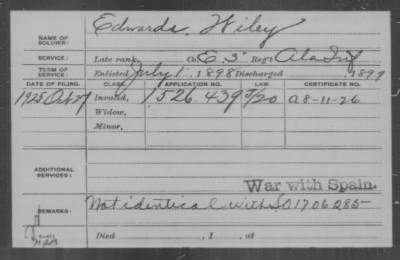 NAME OF SOLDIER: Edwards, Wiley
SERVICE: Late rank, Co. E. 3" Reg't Ala Inf
TERM OF SERVICE: Enlisted July 1 1898 Discharged , 1899
DATE OF FILING. CLASS. APPLICATION NO. LAW. CERTIFICATE NO.
1925 Oct Invalid, 1526 439 5/20 a8-11-26
Widow,
Minor,
ADDITIONAL SERVICES:
War with Spain.
REMARKS: Not identical with SO1706285
Died , 1 , at